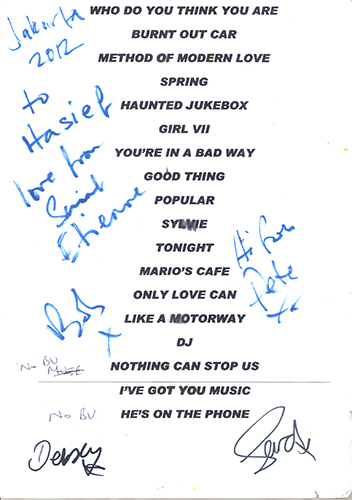 Jakarta
2012
to
Hasief
love from
Saint
Etienne
WHO DO YOU THINK YOU ARE
BURNT OUT CAR
METHOD OF MODERN LOVE
SPRING
HAUNTED JUKEBOX
GIRL VII
YOU'RE IN A BAD WAY
GOOD THING
POPULAR
SYLVIE
TONIGHT
MARIO'S CAFE
ONLY LOVE CAN
LIKE A MOTORWAY
DJ
NOTHING CAN STOP US
I'VE GOT YOU MUSIC
HE'S ON THE PHONE
Hi from
Pete
xx
Bob
X
NO BV
NO BV
Debsey